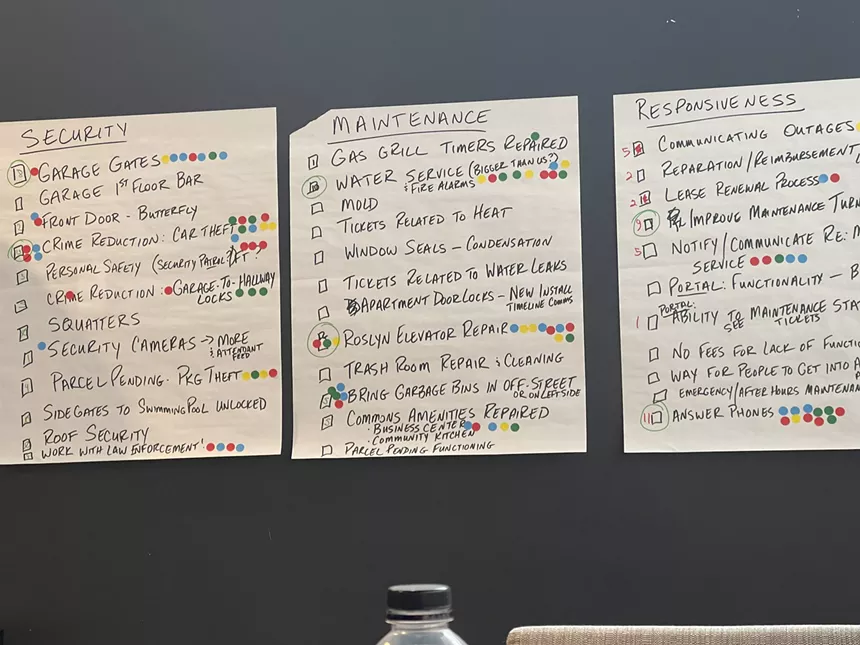 SECURITY
GARAGE GATES
GARAGE 1ST FLOOR BAR
FRONT DOOR - BUTTERFLY
CRIME REDUCTION: CAR THEFT
PERSONAL SAFETY (SECURITY PATROL)
CRIME REDUCTION: GARAGE-TO-HALLWAY
LOCKS
SQUATTERS
SECURITY CAMERAS → MORE
& ATTENDANT
FEED
PARCEL PENDING: PKG THEFT
SIDE GATES TO SWIMMING POOL UNLOCKED
ROOF SECURITY
WORK WITH LAW ENFORCEMENT!
MAINTENANCE
1 GAS GRILL TIMERS REPAIRED
WATER SERVICE (BIGGER THAN US?)
& FIRE ALARMS
MOLD
TICKETS RELATED TO HEAT
WINDOW SEALS - CONDENSATION
TICKETS RELATED TO WATER LEAKS
APARTMENT DOOR LOCKS - NEW INSTALL
TIMELINE COMMS
ROSLYN ELEVATOR REPAIR
TRASH ROOM REPAIR & CLEANING
BRING GARBAGE BINS IN OFF-STREET
OR ON LEFT SIDE
COMMONS AMENITIES REPAIRED
· BUSINESS CENTER
· COMMUNITY KITCHEN
PARCEL PENDING FUNCTIONING
RESPONSIVENESS
5 COMMUNICATING OUTAGES
2 REPARATION/REIMBURSEMENT
2 LEASE RENEWAL PROCESS
9 IMPROVE MAINTENANCE TURN
5 NOTIFY/COMMUNICATE RE: M
SERVICE
PORTAL: FUNCTIONALITY - B
PORTAL:
1 ABILITY TO MAINTENANCE STA
SEE TICKETS
NO FEES FOR LACK OF FUNCTIO
WAY FOR PEOPLE TO GET INTO A
EMERGENCY/AFTER HOURS MAINTENAN
11 ANSWER PHONES